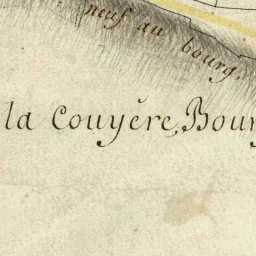 neuf au bourg.
la Couyère, Bourg